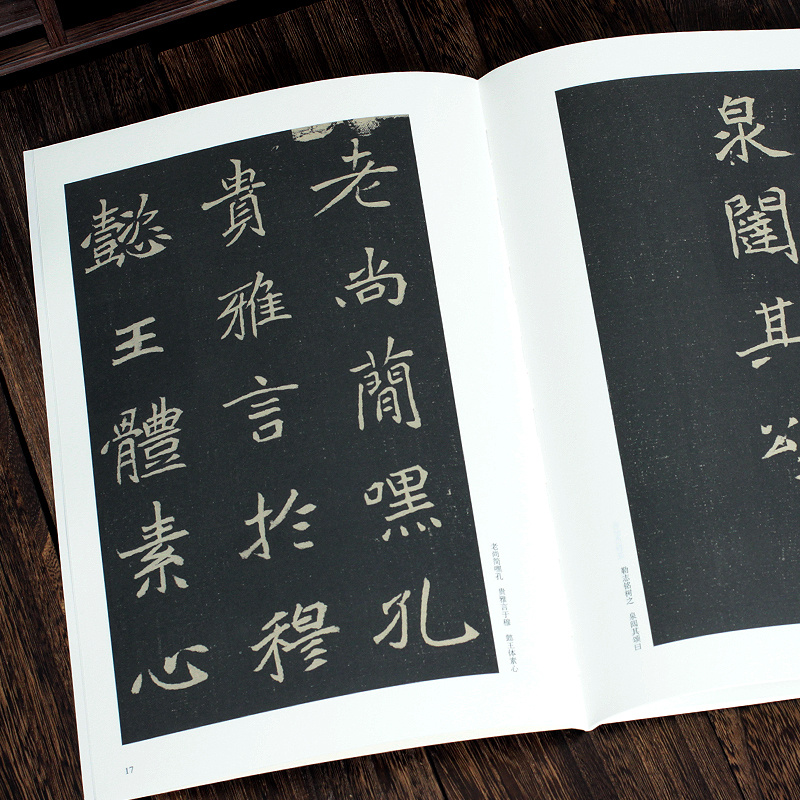 泉闥其
勒志铭树之 泉闼其颂曰
老尚簡嘿孔
貴雅言於穆
懿王體素心
老尚简嘿孔 贵雅言于穆 懿王体素心
17